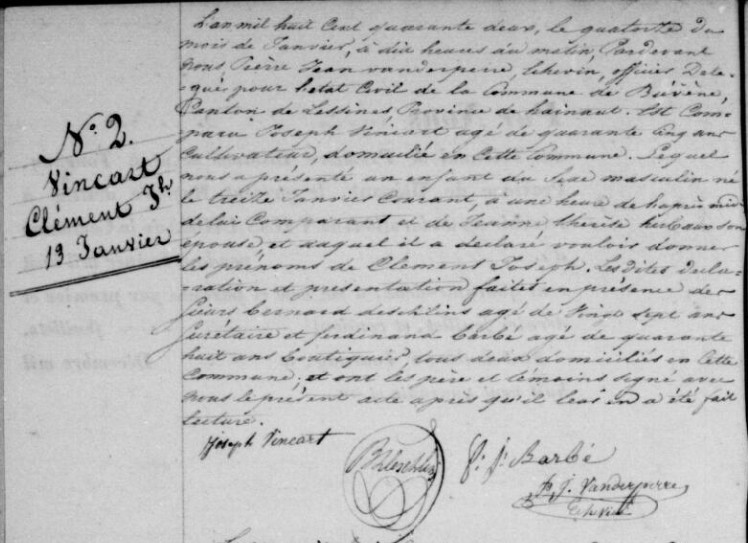 N° 2.
Vincart
Clément Jh
13 Janvier
L'an mil huit Cent quarante deux, le quatorze du
mois de Janvier, à dix heures du matin, Pardevant
nous, Pierre Jean vanderperre, Echevin, officier Dele-
-gué pour l'etat Civil de la Commune de Biévène,
Canton de Lessines Province de hainaut. Est Com-
paru Joseph Vincart agé de quarante Cinq ans
Cultivateur, domicilié en Cette Commune. Lequel
nous a présenté un enfant du Sexe masculin né
le treize Janvier Courant, à une heure de l'après midi
de lui Comparant et de Jeanne thérèse herbaux son
épouse, et auquel il a déclaré vouloir donner
les prénoms de Clement Joseph. Les dites decla-
-ration et présentation faites en présence des
sieurs bernard agé de Vingt Sept ans
secrétaire et ferdinand barbé agé de quarante
huit ans boutiquier, tous deux domiciliés en Cette
Commune; et ont les père et témoins signé avec
nous le présent acte après qu'il leur en a été fait
lecture.
Joseph Vincart
f. J. Barbé
P. J. Vanderperre
Echevin